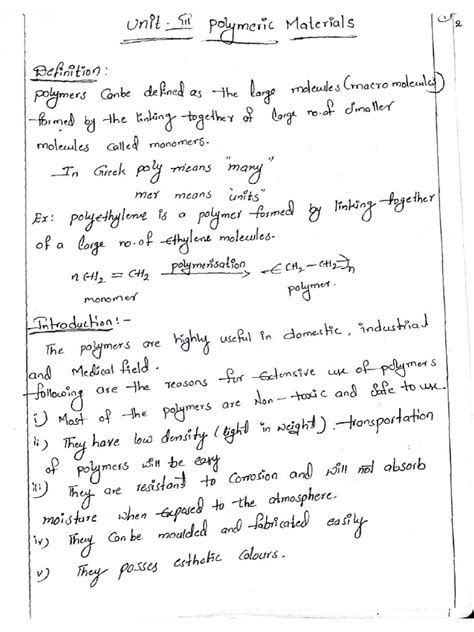 Unit - III Polymeric Materials
Definition :
polymers can be defined as the large molecules (macro molecules)
formed by the linking together of large no. of smaller
molecules called monomers.
In Greek poly means "many"
mer means "units"
Ex: polyethylene is a polymer formed by linking together
of a large no. of ethylene molecules.
n CH2 = CH2 polymerisation -(-CH2 - CH2-)-n
monomer polymer.
Introduction : -
The polymers are highly useful in domestic, industrial
and Medical field.
following are the reasons for Extensive use of polymers
i) Most of the polymers are Non-toxic and safe to use.
ii) They have low density (light in weight). transportation
of polymers will be easy
iii) They are resistant to Corrosion and will not absorb
moisture when Exposed to the atmosphere.
iv) They can be moulded and fabricated easily
v) They posses esthetic colours.